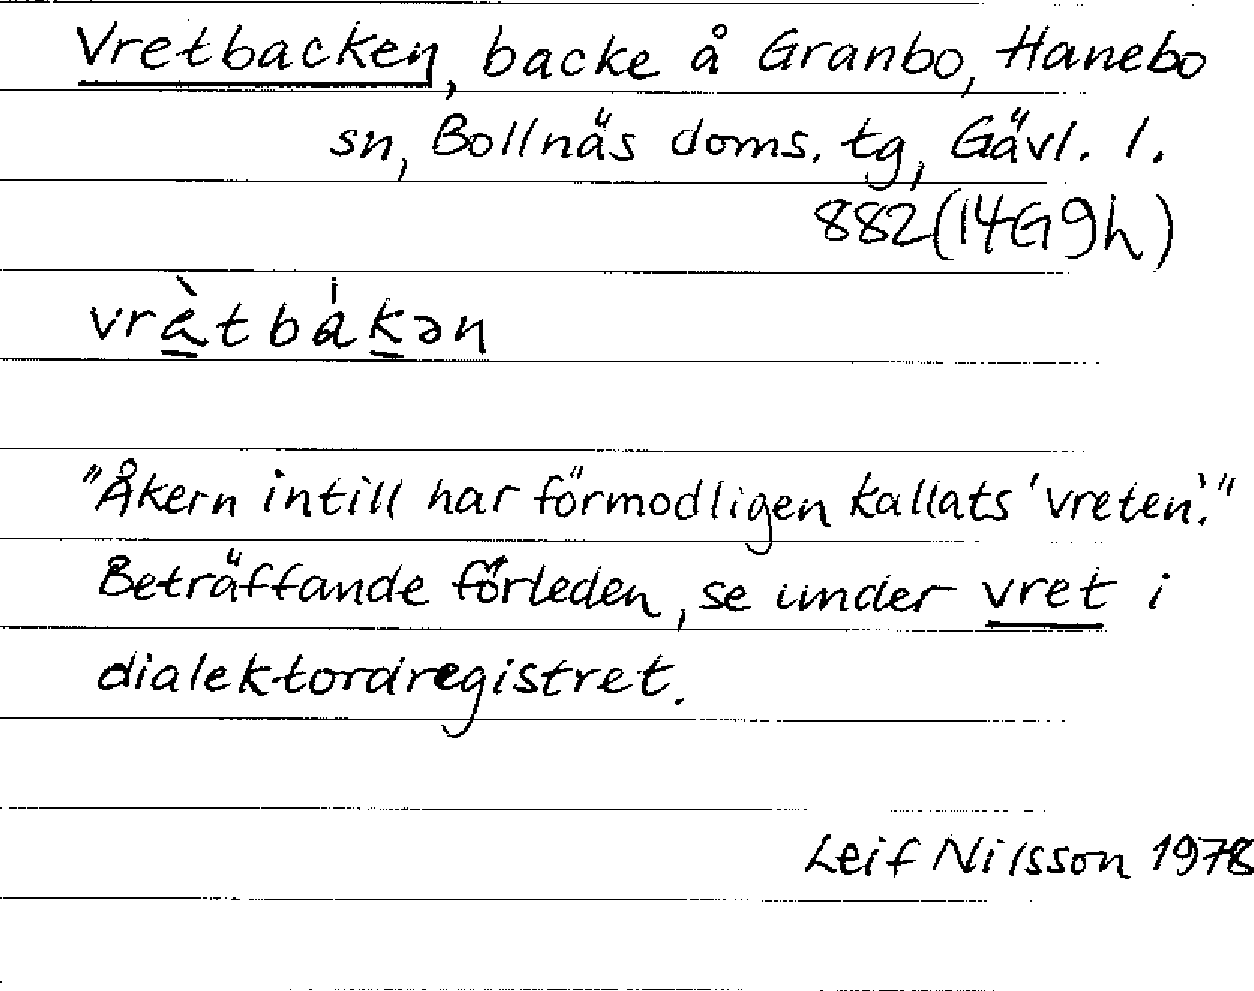 Vretbacken, backe å Granbo, Hanebo
sn, Bollnäs doms. tg, Gävl. l.
882(14G9h)
vrètbákən
"Åkern intill har förmodligen kallats 'vreten'."
Beträffande förleden, se under vret i
dialektordregistret.
Leif Nilsson 1978